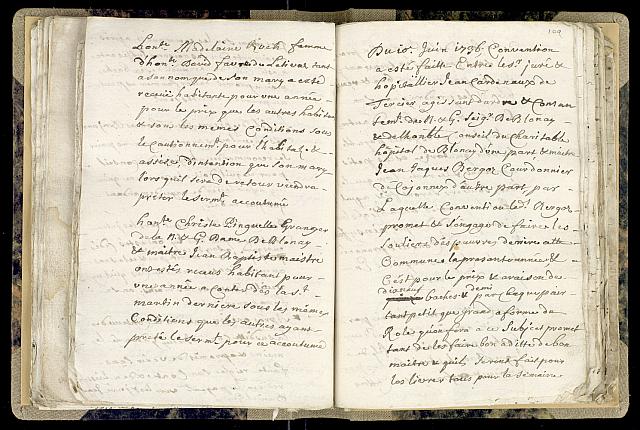 honte. Madelaine Roch femme
d'honte. David favre du Letivaz tant
a son nom que de son mary a esté
receüe habitante pour une année
pour le prix que les autres habitans
& sous les memes Conditions sous
le Cautionnement pour l'habita &
assise d'intention que son mary
lors quil sera de retour viendra
préter le serment accoutumé
honte. Christe Pinguelle Granger
de la N. & G. Dame De Blonay
& maitre Jean Baptiste maistre
ont estés receus habitant pour
une année a Conter dés la St.
martin derniere sous les mémes
Conditions que les autres ayant
presté le serment. pour ce accoutumé
109
Du 10e. Juin 1736 Convention
a estée faitte Entre les Srs. juré &
hospitallier Jean Cardenaux de
Tercier agissant dardre & Consen
tement. de N. & G. Seigr. De Blonay
& de lhonble Conseil du Charitable
hopital de Blonay d'une part & maitre
Jean Jaques Berges Courdonnier
de d'autre part, par
Laquelle Convention le dt. Berges
promet & s'engage de faire les
Souliers des pauvres de notre ditte
Commune la presente année &
C'est pour le prix & a raison de
dix neuf baches & demi par Chaque pair
tant petit que grand a forme du
Role qu'on fera a ce Subjet promet
tant de les faire bon a ditte de bon
maitre & quils seront fait pour
les livrer tous pour la Semaine